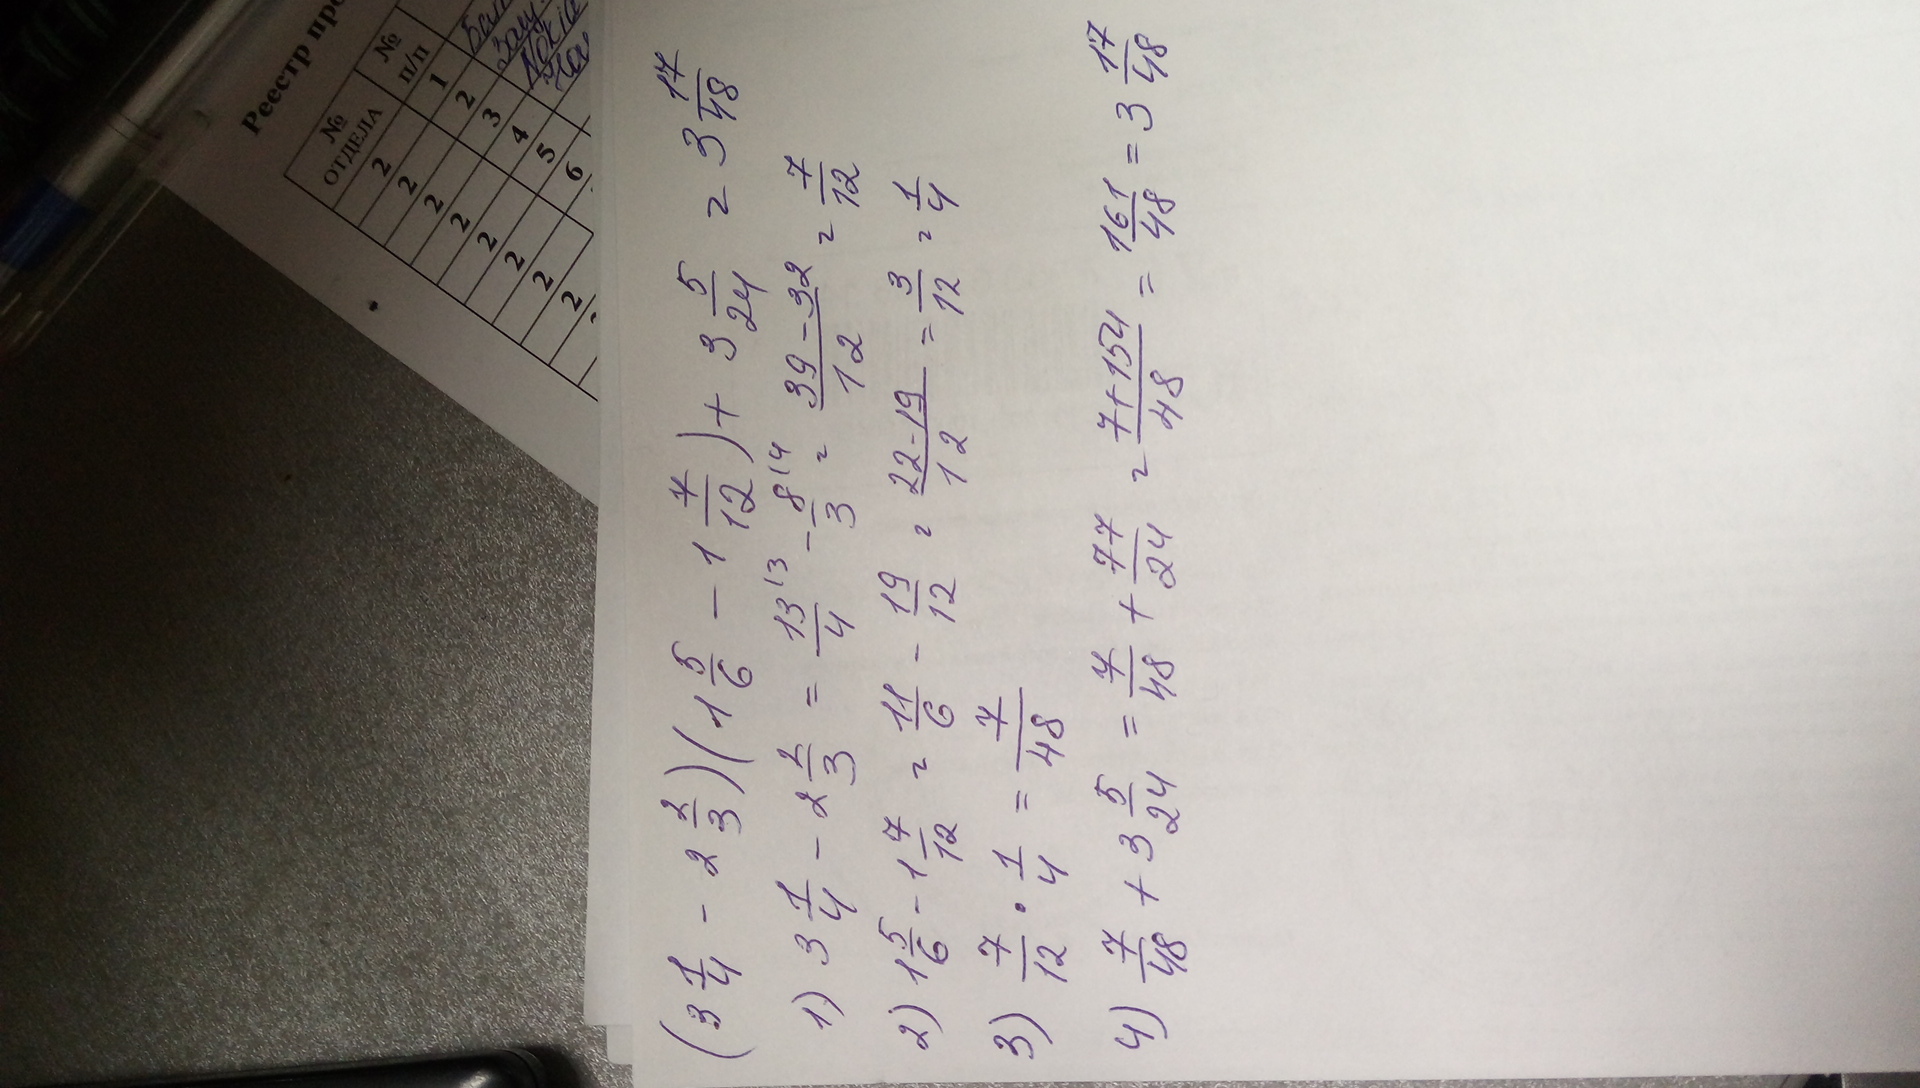 Реестр пр
№ ОТДЕЛА № п/п
2 1
2 2
2 3
2 4
2 5
2 6
2
2
Nokia
(3 1/4 - 2 2/3)(1 5/6 - 1 7/12) + 3 5/24 = 3 17/48
1) 3 1/4 - 2 2/3 = 13/4 \3 - 8/3 \4 = 39-32/12 = 7/12
2) 1 5/6 - 1 7/12 = 11/6 - 19/12 = 22-19/12 = 3/12 = 1/4
3) 7/12 · 1/4 = 7/48
4) 7/48 + 3 5/24 = 7/48 + 77/24 = 7+154/48 = 161/48 = 3 17/48